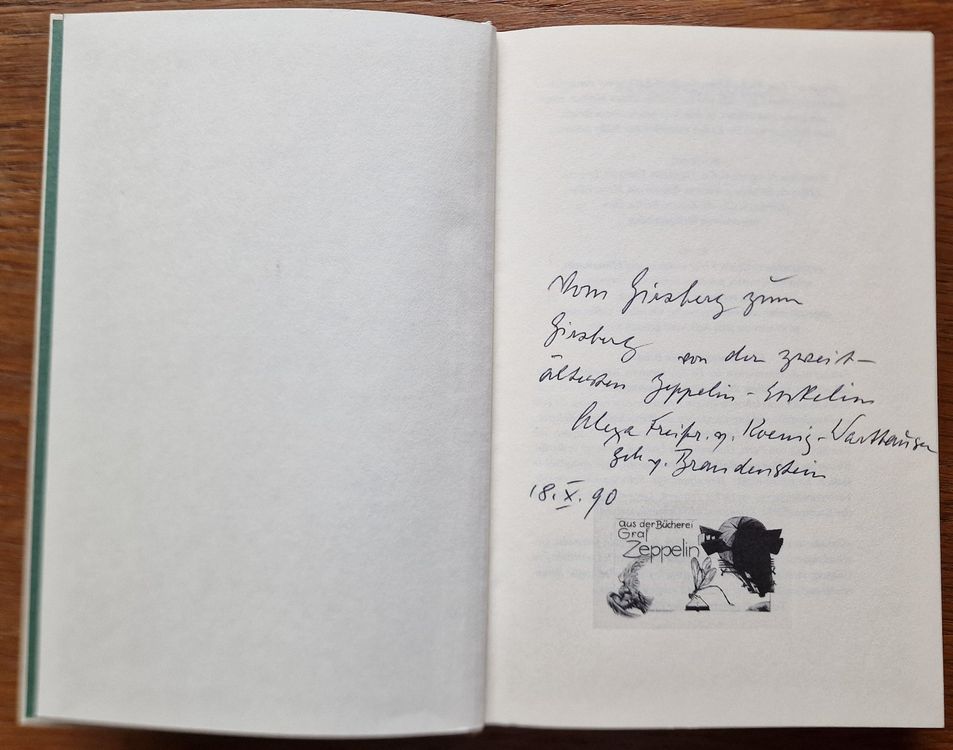 Vom Girsberg zum
Girsberg von der zweit-
ältesten Zeppelin-Enkelin
Alexa Freifr. v. Koenig-Warthausen
geb. v. Brandenstein
18.X.90
aus der Bücherei
Graf
Zeppelin